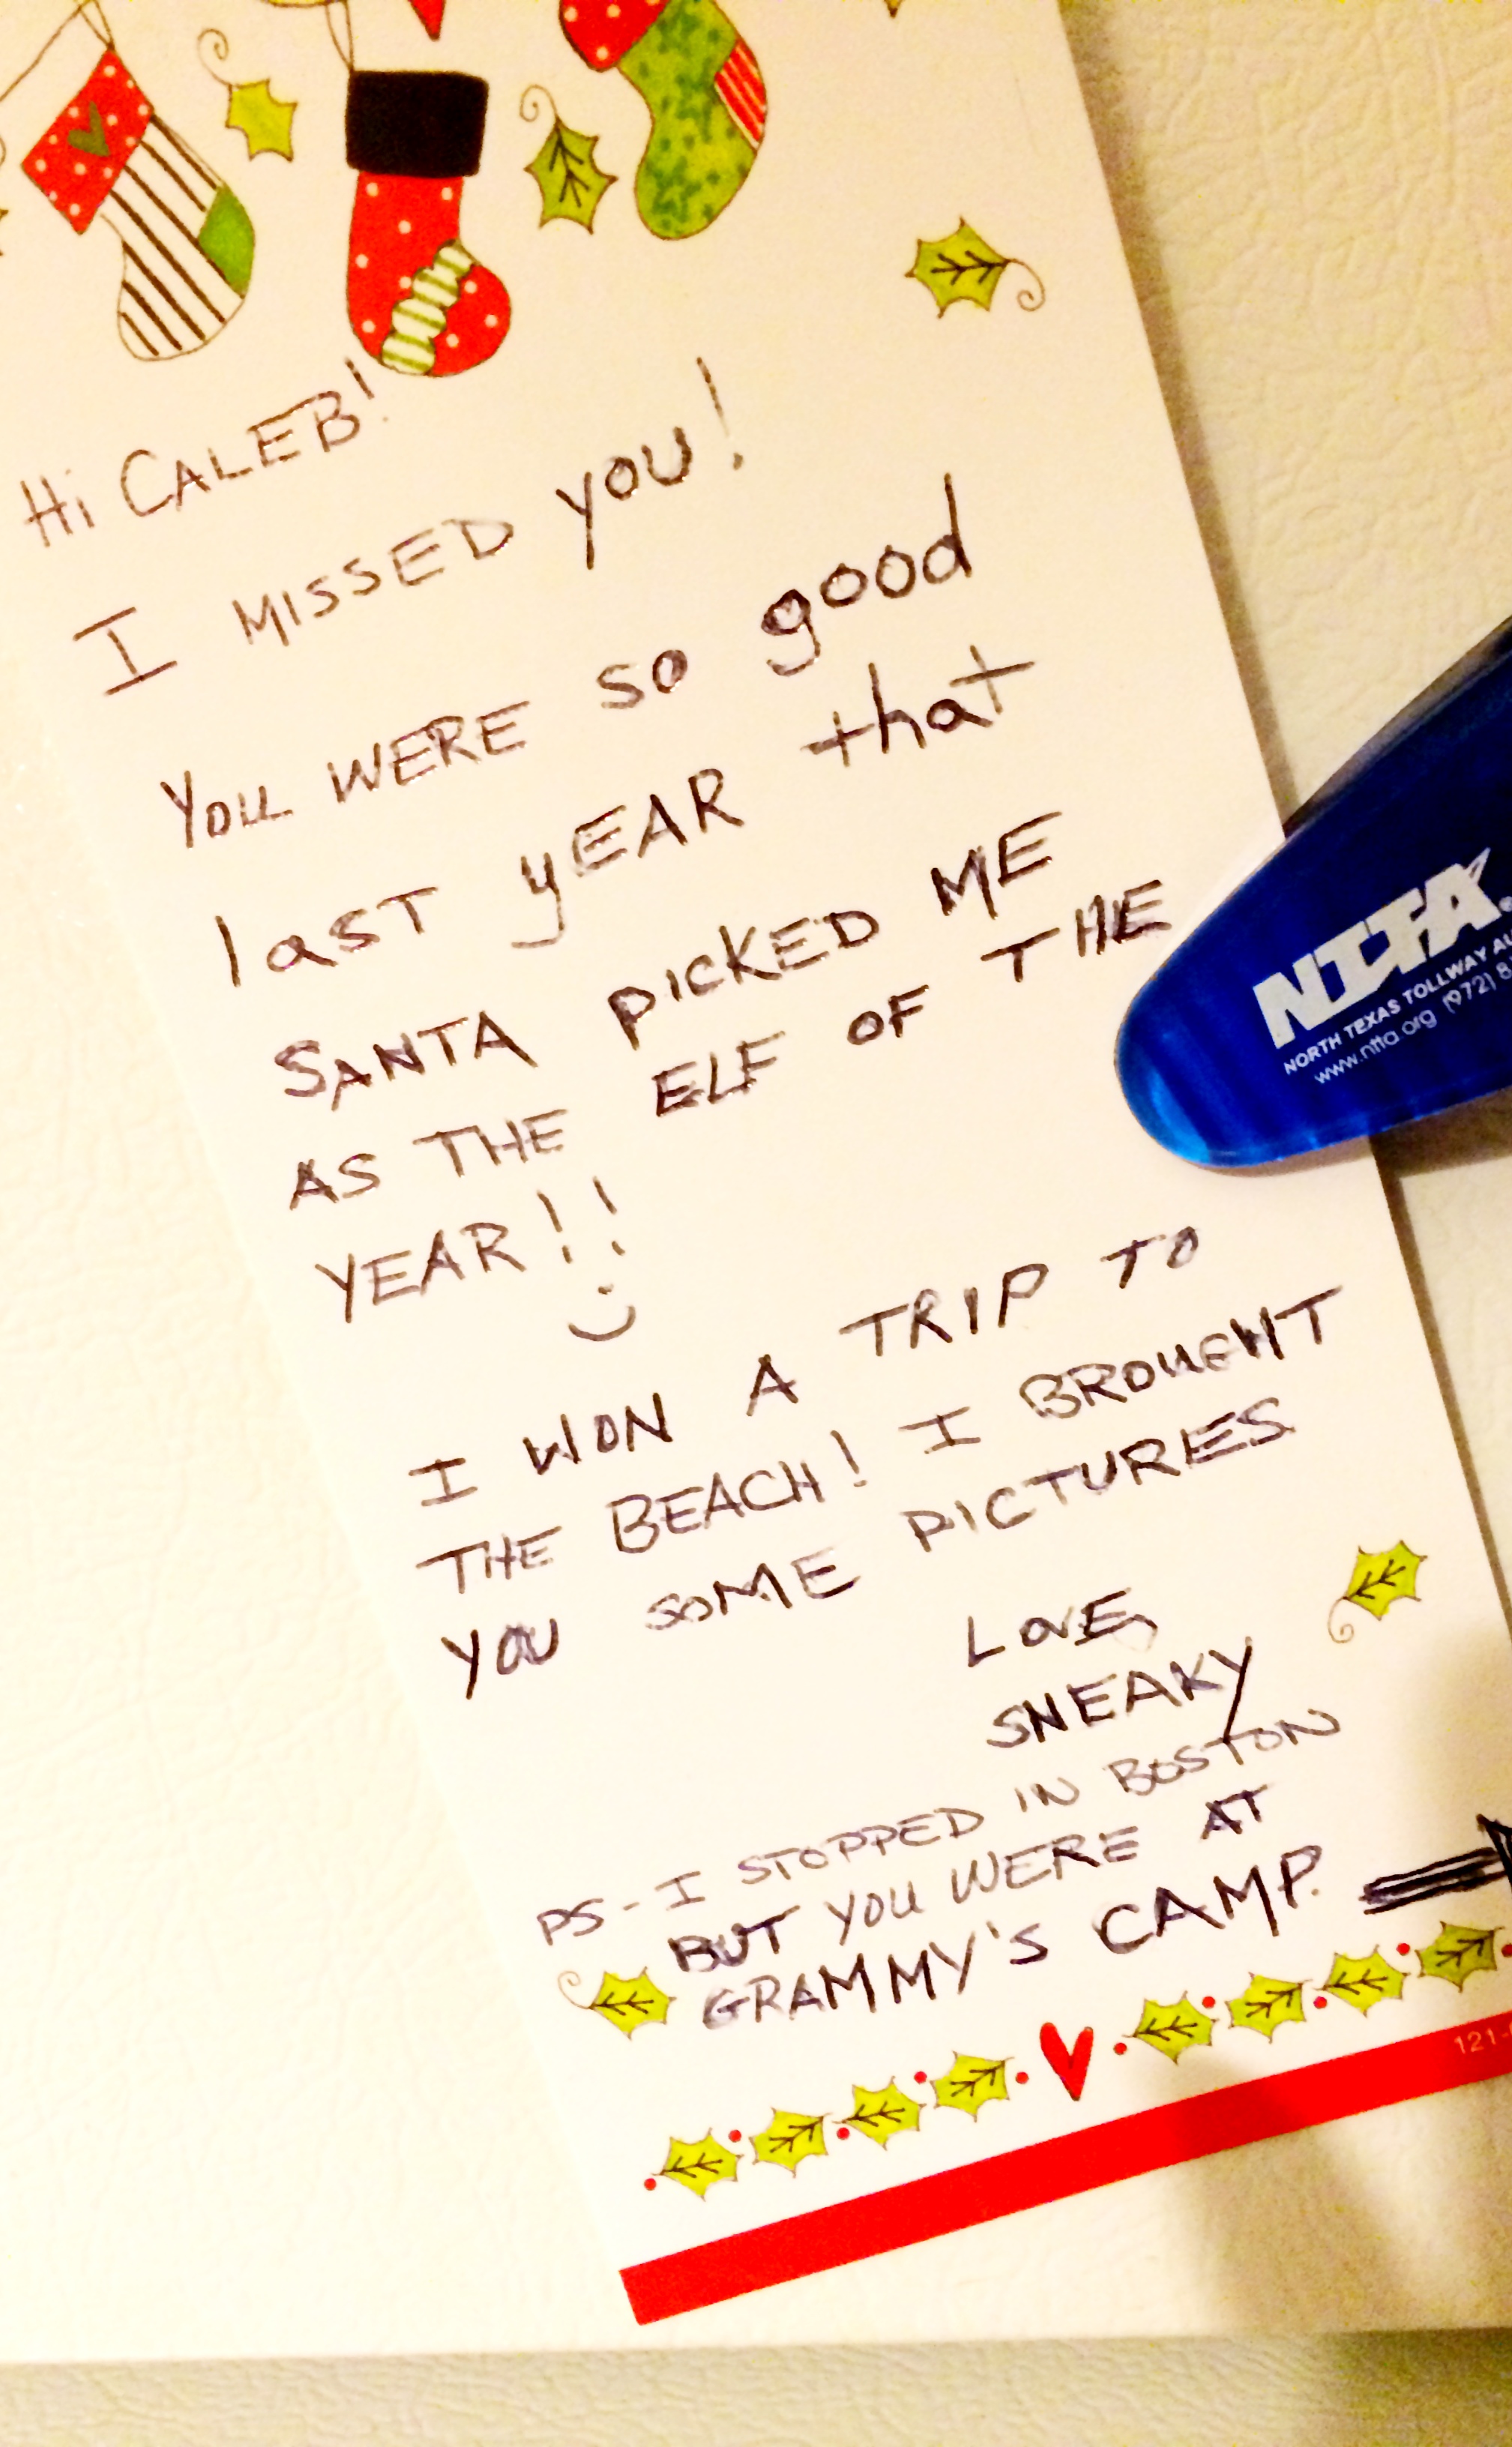 Hi CALEB!
I MISSED you!
YOU WERE so good
last yEAR that
SANTA PICKED ME
AS THE ELF OF THE
YEAR!!
I WON A TRIP TO
THE BEACH! I BROUGHT
YOU SOME PICTURES
LOVE,
SNEAKY
PS - I STOPPED IN BOSTON
BUT YOU WERE AT
GRAMMY'S CAMP.
NTTA
NORTH TEXAS TOLLWAY
www.ntta.org (972)